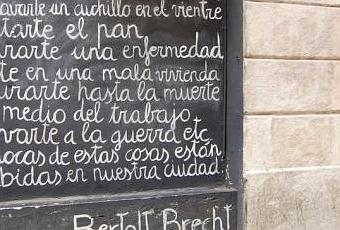 avarte un cuchillo en el vientre
tarte el pan
rarte una enfermedad
te en una mala vivienda
urarte hasta la muerte
medio del trabajo
varte a la guerra etc
ocas de estas cosas están
bidas en nuestra ciudad.
Bertolt Brecht